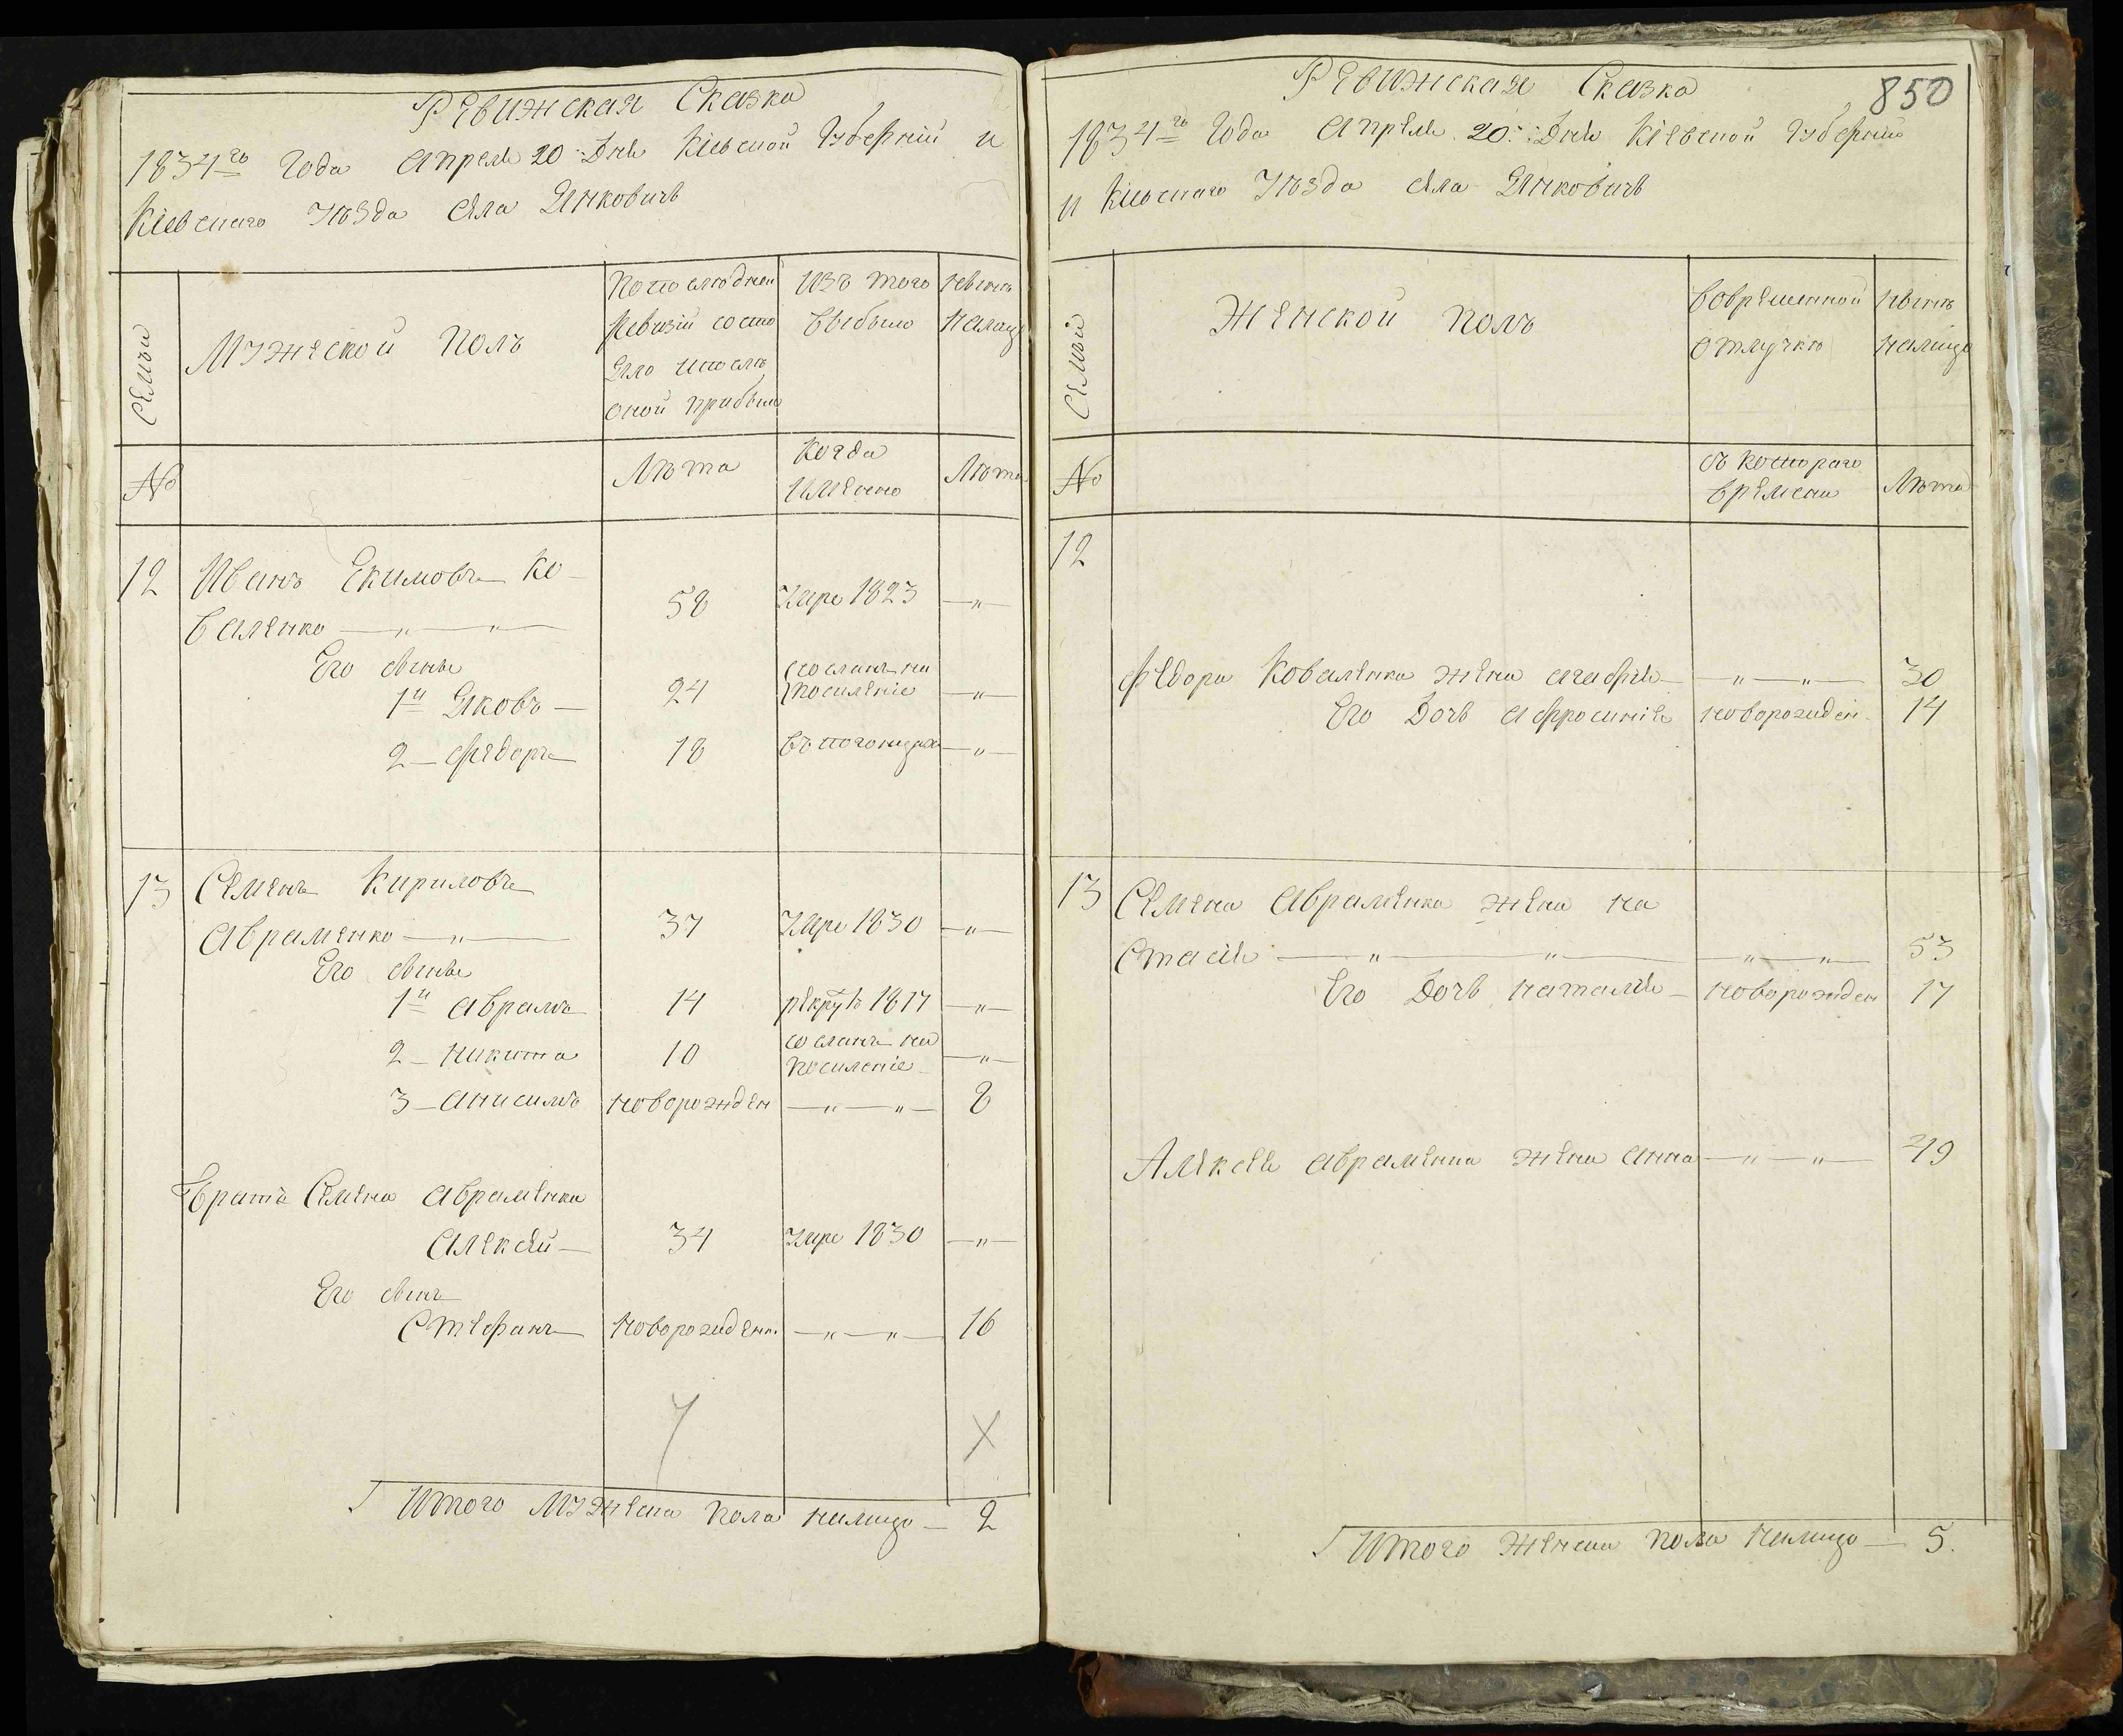 Ревижская Сказка
1834го Года Апреля 20: Дня Кіевской Губерніи и
Кіевскаго Уѣзда Села Янковичь
Семьи
Мужеской Полъ
По последней
Ревизіи состо
яло и послѣ
оной прибыло
Изъ того
выбыло
Ныне
налицо
№
Лѣта
Когда
Именно
Лѣта
12 Иванъ Екимовъ Ко-
валенко — " — " — 58 Умре 1823 — " —
Его сыны
1й Яковъ — 24 сосланъ на
посиленіе — " —
2 — Федоръ 18 — " —
13 Семенъ Кириловъ
Авраменко — " — 37 Умре 1830 — " —
Его сыны
1й Аврамъ 14 рекрутъ 1817 — " —
2 — Никита 10 сосланъ на
посиленіе — " —
3 — Анисимъ новорожден — " — " — 8
Братъ Семена Авраменка
Алексей — 34 Умре 1830 — " —
Его сынъ
Стефанъ новорожденн. — " — " — 16
7 X
Итого Мужеска пола налицо — 2
850
Ревижская Сказка
1834го Года Апреля 20: Дня Кіевской Губерніи
и Кіевскаго Уѣзда Села Янковичь
Семьи
Женской Полъ
Во временной
отлучкѣ
Ныне
налицо
№
Съ котораго
времени
Лѣта
12
Федора Коваленка жена Агафія — " — " — 30
Его Дочь Афросинія новорожден. 14
13 Семена Авраменка жена На
стасія — " — " — " — " — 53
Его Дочь Наталія — новорожден 17
Алексея Авраменка жена Анна — " — " — 49
Итого женска пола налицо — 5.